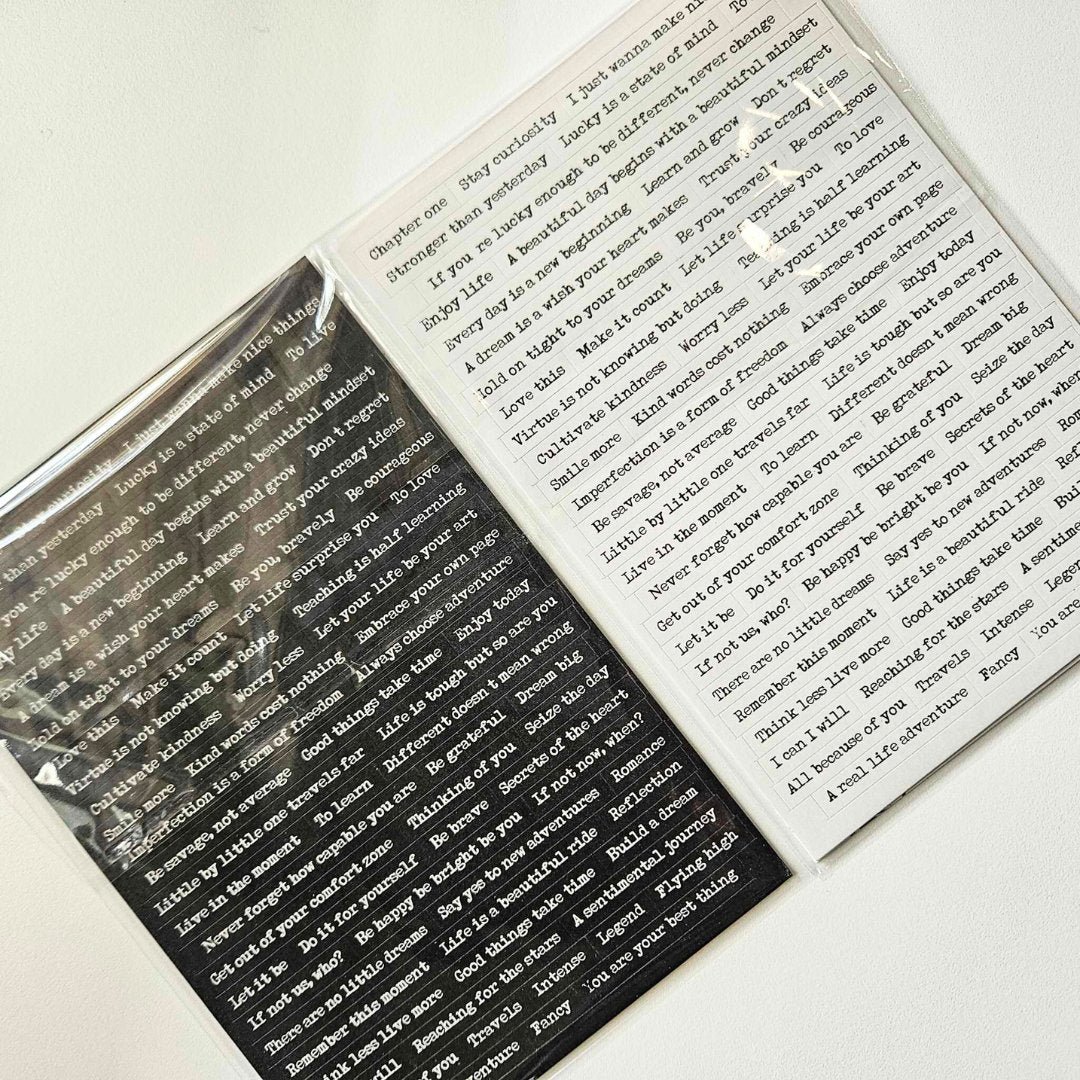 Chapter one Stay curiosity I just wanna make nic
Stronger than yesterday Lucky is a state of mind To
If you re lucky enough to be different, never change
Enjoy life A beautiful day begins with a beautiful mindset
Every day is a new beginning Learn and grow Don t regret
A dream is a wish your heart makes Trust your crazy ideas
Hold on tight to your dreams Be you, bravely Be courageous
Love this Make it count Let life surprise you To love
Virtue is not knowing but doing Teaching is half learning
Cultivate kindness Worry less Let your life be your art
Smile more Kind words cost nothing Embrace your own page
Imperfection is a form of freedom Always choose adventure
Be savage, not average Good things take time Enjoy today
Little by little one travels far Life is tough but so are you
Live in the moment To learn Different doesn t mean wrong
Never forget how capable you are Be grateful Dream big
Get out of your comfort zone Thinking of you Seize the day
Let it be Do it for yourself Be brave Secrets of the heart
If not us, who? Be happy be bright be you If not now, when
There are no little dreams Say yes to new adventures Rom
Remember this moment Life is a beautiful ride Refl
Think less live more Good things take time Buil
I can I will Reaching for the stars A sentime
All because of you Travels Intense Legen
A real life adventure Fancy You are
curiosity I just wanna make nice things
than yesterday Lucky is a state of mind To live
you re lucky enough to be different, never change
life A beautiful day begins with a beautiful mindset
Every day is a new beginning Learn and grow Don t regret
A dream is a wish your heart makes Trust your crazy ideas
Hold on tight to your dreams Be you, bravely Be courageous
Love this Make it count Let life surprise you To love
Virtue is not knowing but doing Teaching is half learning
Cultivate kindness Worry less Let your life be your art
Smile more Kind words cost nothing Embrace your own page
Imperfection is a form of freedom Always choose adventure
Be savage, not average Good things take time Enjoy today
Little by little one travels far Life is tough but so are you
Live in the moment To learn Different doesn t mean wrong
Never forget how capable you are Be grateful Dream big
Get out of your comfort zone Thinking of you Seize the day
Let it be Do it for yourself Be brave Secrets of the heart
If not us, who? Be happy be bright be you If not now, when?
There are no little dreams Say yes to new adventures Romance
Remember this moment Life is a beautiful ride Reflection
ink less live more Good things take time Build a dream
ill Reaching for the stars A sentimental journey
of you Travels Intense Legend Flying high
venture Fancy You are your best thing